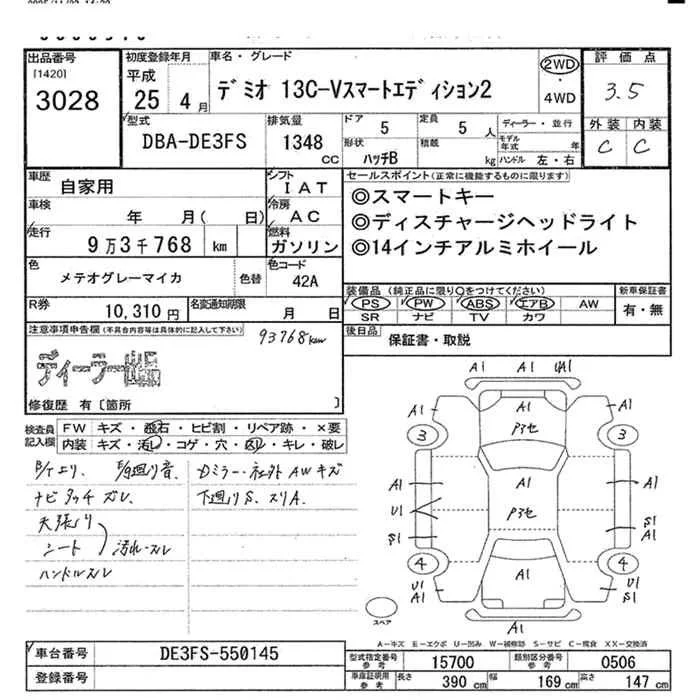 出品番号
[1420]
3028
初度登録年月
平成
25 4月
車名・グレード
デミオ 13C-Vスマートエディション2
2WD
・
4WD
評価点
3.5
外装 内装
C C
型式
DBA-DE3FS
排気量
1348
CC
ドア 5
形状 ハッチB
定員 5人
積載 kg
ディーラー・並行
モデル年式 年
ハンドル 左・右
車歴 自家用
車検 年 月( 日)
走行 9万3千768 km
シフト IAT
冷房 AC
燃料 ガソリン
色 メテオグレーマイカ 色替
色コード 42A
R券 10,310円
名変通知期限 月 日
セールスポイント(正常に機能するものに限ります)
◎スマートキー
◎ディスチャージヘッドライト
◎14インチアルミホイール
装備品(純正品に限り○をつけてください)
PS PW ABS エアB AW
SR ナビ TV カワ
新車保証書
有・無
後日品 保証書・取説
注意事項申告欄(不具合内容等は具体的に記入して下さい)
93768km
ディーラー
修復歴 有〔箇所 〕
検査員記入欄
FW キズ・飛石・ヒビ割・リペア跡・×要
内装 キズ・汚レ・コゲ・穴・凹レ・キレ・破レ
ナビタッチズレ
天張り
シート
汚れ・スレ
ハンドルスレ
Dミラー・社外AWキズ
下廻りS、スリA
A1 A1 UA1
A1 A1 A1
P3セ
3 3
A1 A1 A1
U1 P3セ S1
S1 A1
4 4
U1 A1 U1
A1 S1
A1
スペア
A-キズ E-エクボ U-凹み W-補修跡 S-サビ C-腐食 XX-交換済
車台番号 DE3FS-550145
登録番号
型式指定番号 参考 15700
類別区分番号 参考 0506
車庫証明用 参考 長さ 390cm 幅 169cm 高さ 147cm